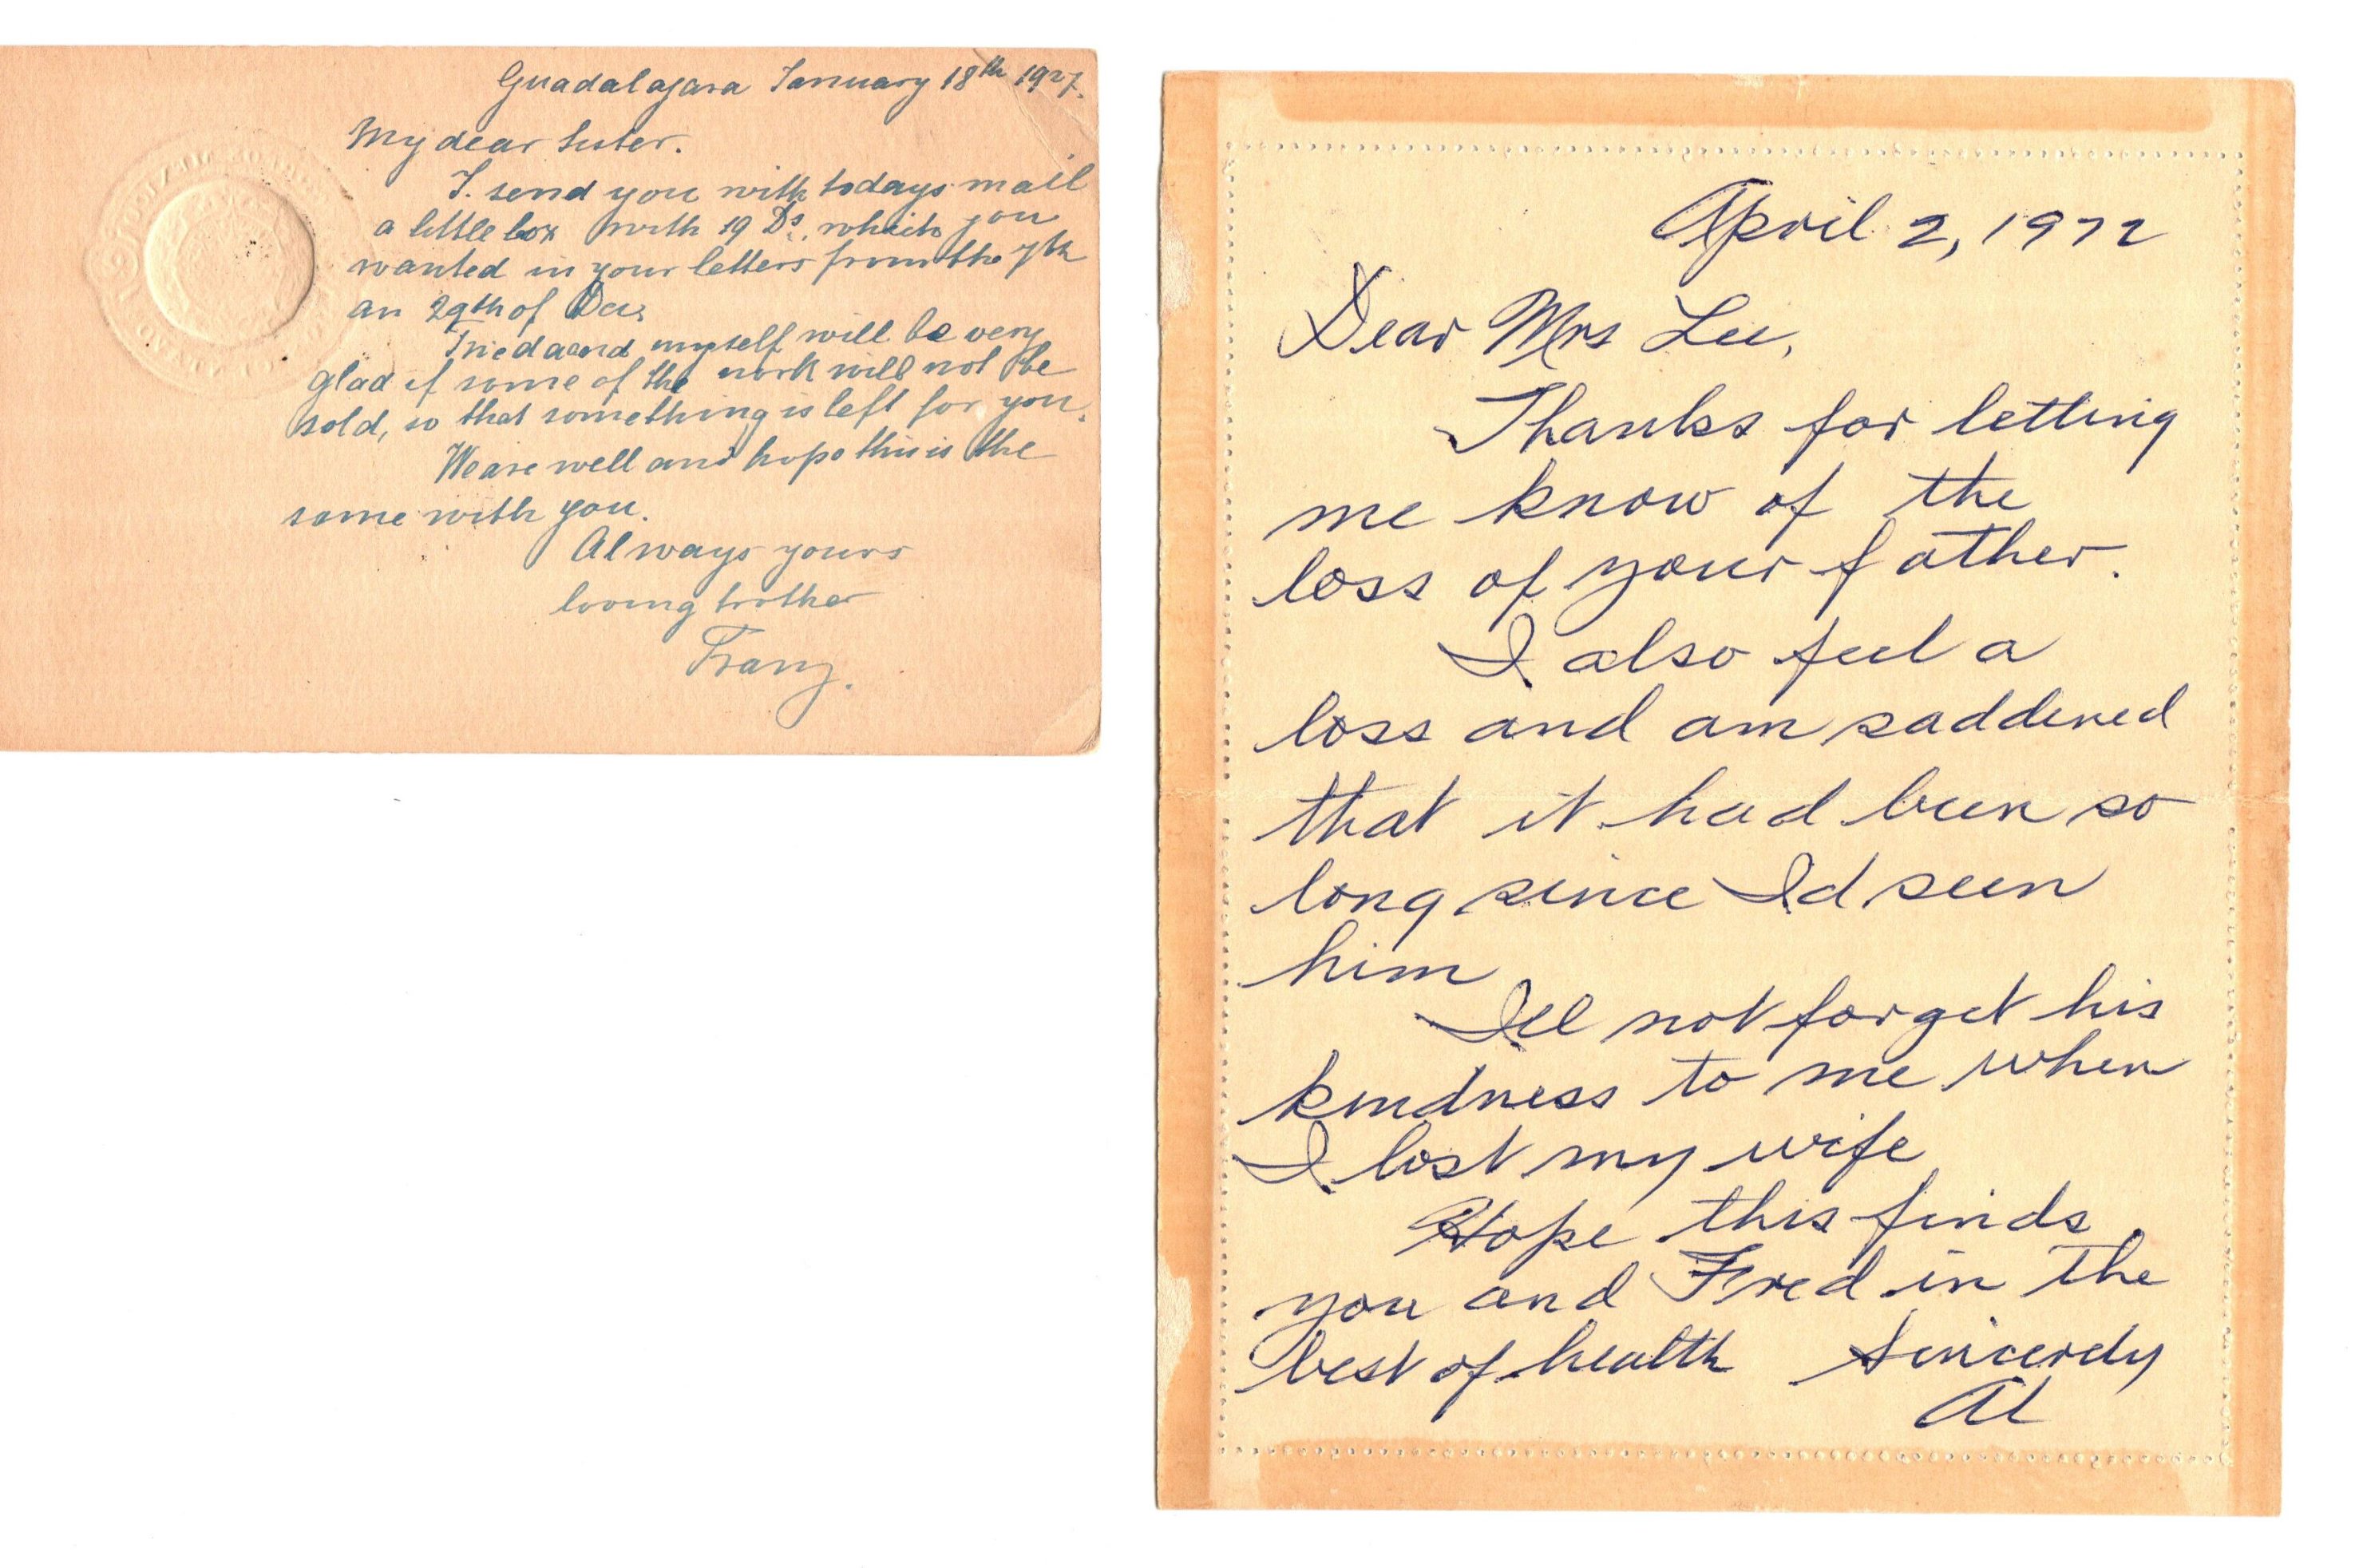 Guadalajara January 18th 1927.
My dear Sister.
I. send you with todays mail
a little box with 19 Ds. which you
wanted in your letters from the 7th
an 29th of Dec.
and myself will be very
glad if some of the work will not be
sold, so that something is left for you.
We are well and hope this is the
same with you.
Always yours
loving brother
Franz.
April 2, 1972
Dear Mrs Lee,
Thanks for letting
me know of the
loss of your father.
I also feel a
loss and am saddened
that it had been so
long since Id seen
him
Ill not forget his
kindness to me when
I lost my wife
Hope this finds
you and Fred in the
best of health Sincerely
Al